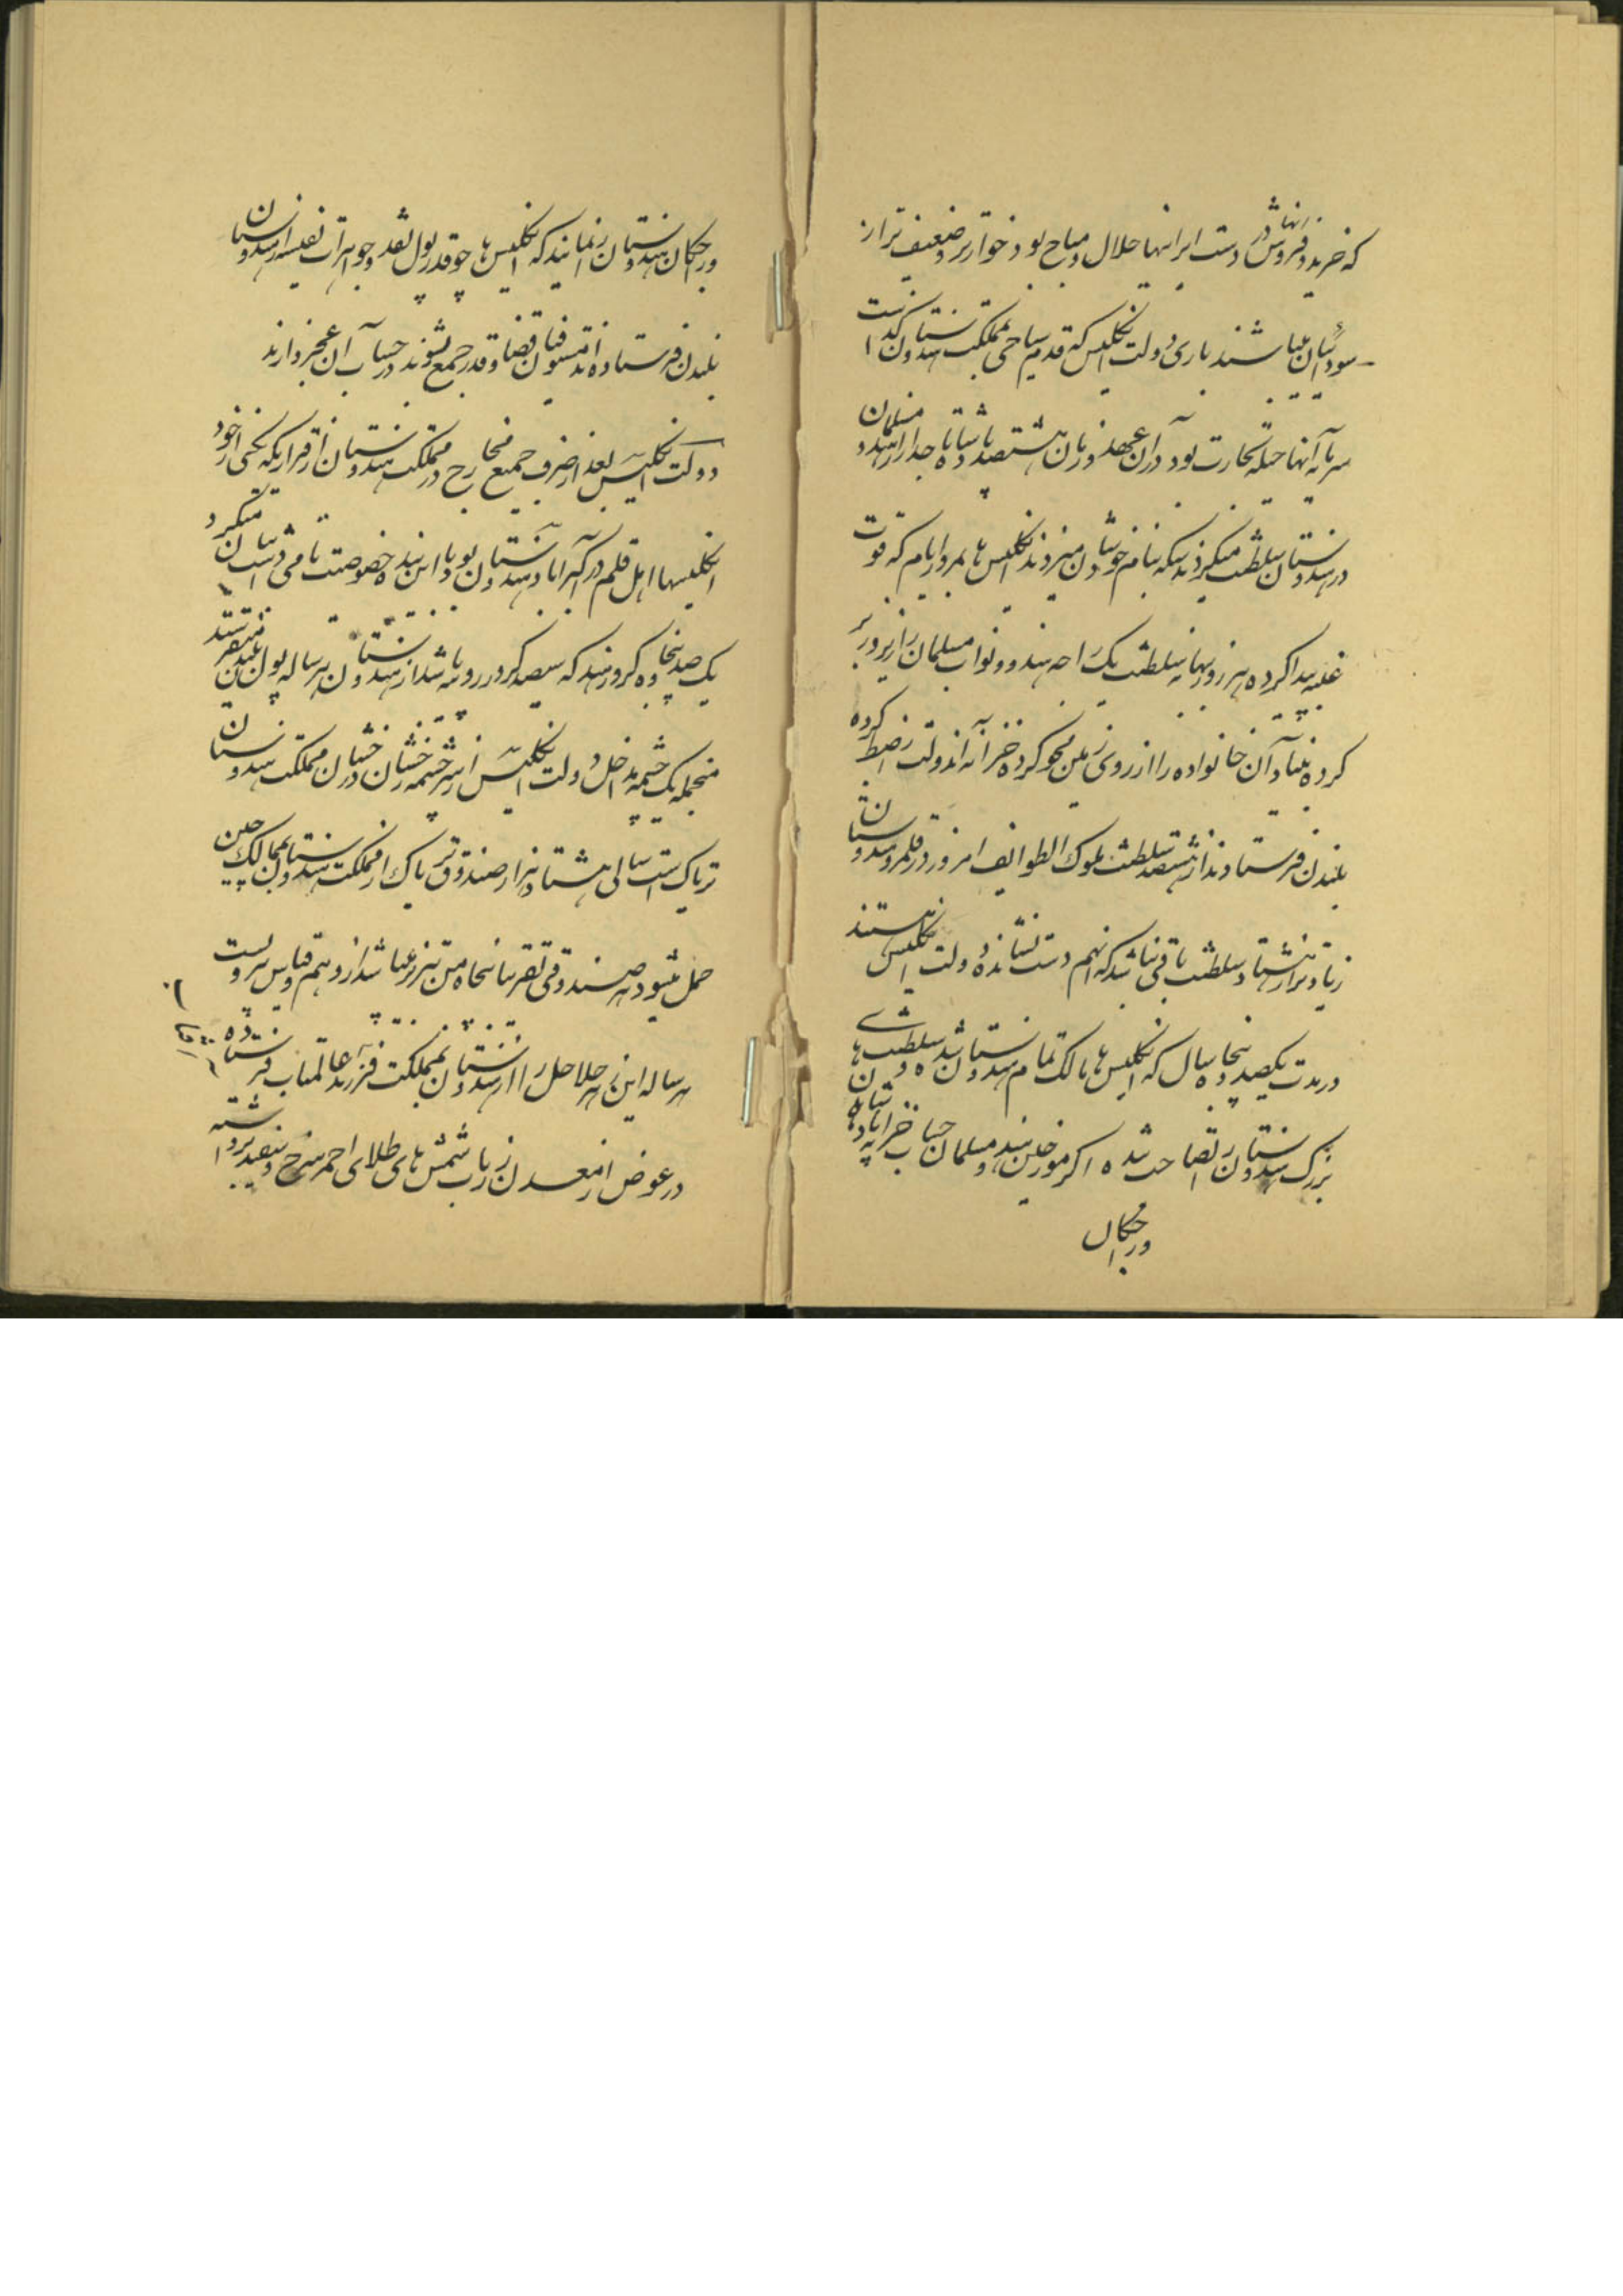 که خرید و فروش انها در دست ایرانیها حلال و مباح بود خوارتر و ضعیف تر از
سودانیان میباشند باری دولت انگلیس که قدم سیاحی بمملکت هندوستان گذاشت
سرمایه آنها حیله تجارت بود در آن عهد و زمان هشتصد پادشاه با جدار از هندو مسلمان
در هندوستان سلطنت میکردند سکه بنام خودشان میزدند انگلیس ها بمرور ایام که قوت
غلبه پیدا کرده هر روز بهانه سلطنت یک راجه هندو و نواب مسلمان را زیر و زبر
کرده بنیاد آن خانواده را از روی زمین محو کرده خزانه اندولت را ضبط کرده
بلندن فرستادند از هشتصد سلطنت ملوک الطوایف امروز در قلمرو هندوستان
زیاده از هشتاد سلطنت باقی نباشد که انهم دست نشانده دولت انگلیس هستند
در مدت یکصد و پنجاه سال که انگلیس ها مالک تمام هندوستان شده و سلطنت های
بزرگ هندوستان را تصاحب شده اگر مورخین هند و مسلمان حساب خزانه پادشاهان
و راجکان
و راجکان هندوستان را نمایند که انگلیس ها چو قدر پول نقد و جواهرات نفیسه از هندوستان
بلندن فرستاده اند مستوفیان قضا و قدر جمع بشوند در حساب آن عجز دارند
دولت انگلیس بعد از صرف جمیع مخارج در مملکت هندوستان از قراریکه یکی از خود
انگلیسها اهل قلم در اکبراباد هندوستان بود با این بنده خصوصیت تامی داشت بیان میکرد
یک صد پنجاه کرور هند که سیصد کرور روپیه باشد از هندوستان هر ساله پول بلندن میفرستند
منجمله یک چشمه مداخل دولت انگلیس از سرچشمه رخشان درخشان مملکت هندوستان
تریاک است سالی هشتاد هزار صندوق تریاک از مملکت هندوستان بممالک چین
حمل میشود هر صندوقی تقریبا پنجاه من تبریز میباشد از روی هم قیاس هر دولت
هر ساله این زهر هلاهل را از هندوستان بمملکت فرزند عالمتاب فرستاده
در عوض از معدن زرناب شمش های طلای احمر سرخ و سفید برداشته